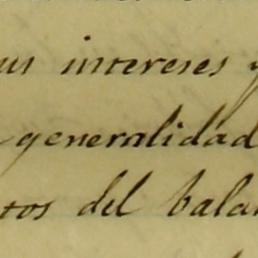 sus intereses y
generalidad
tos del balan